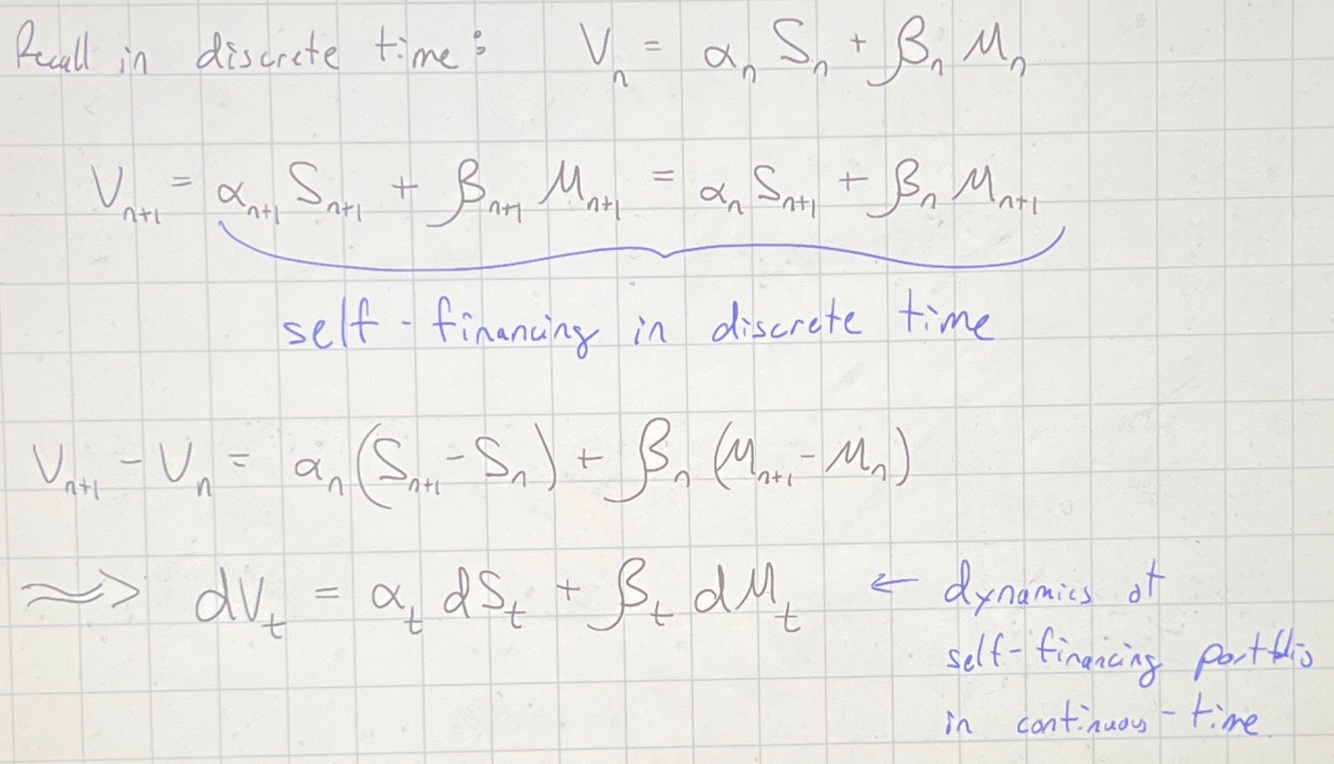 Recall in discrete time: Vₙ = αₙ Sₙ + βₙ Mₙ
Vₙ₊₁ = αₙ₊₁ Sₙ₊₁ + βₙ₊₁ Mₙ₊₁ = αₙ Sₙ₊₁ + βₙ Mₙ₊₁
self-financing in discrete time
Vₙ₊₁ - Vₙ = αₙ (Sₙ₊₁ - Sₙ) + βₙ (Mₙ₊₁ - Mₙ)
≈> dVₜ = αₜ dSₜ + βₜ dMₜ ← dynamics of
self-financing portfolio
in continuous-time